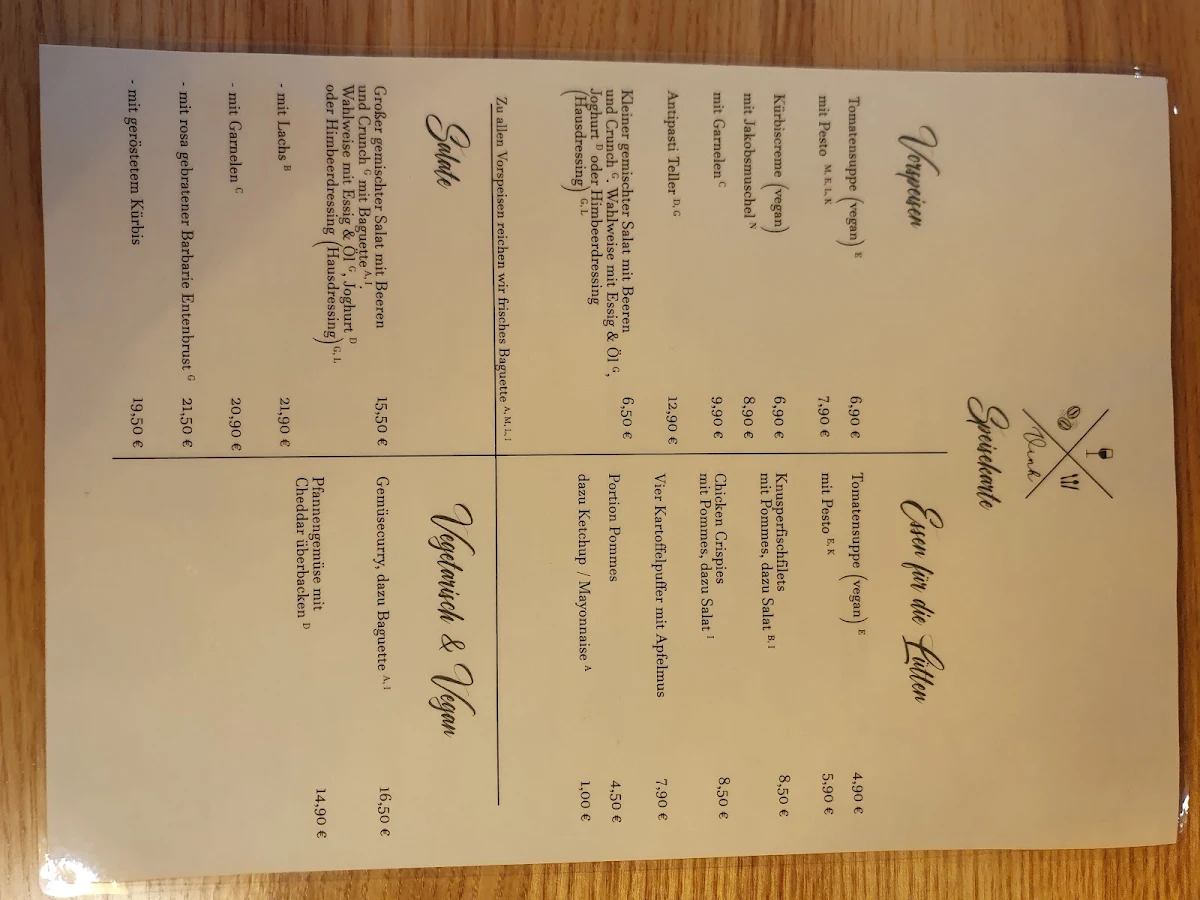 Vink
Speisekarte
Vorspeisen
Tomatensuppe (vegan) E 6,90 €
mit Pesto M, E, L, K 7,90 €
Kürbiscreme (vegan) 6,90 €
mit Jakobsmuschel N 8,90 €
mit Garnelen C 9,90 €
Antipasti Teller D, G 12,90 €
Kleiner gemischter Salat mit Beeren 6,50 €
und Crunch G. Wahlweise mit Essig & Öl G,
Joghurt D oder Himbeerdressing
(Hausdressing) G, L
Zu allen Vorspeisen reichen wir frisches Baguette A, M, L, I
Salate
Großer gemischter Salat mit Beeren 15,50 €
und Crunch G mit Baguette A, I.
Wahlweise mit Essig & Öl G, Joghurt D
oder Himbeerdressing (Hausdressing) G, L
- mit Lachs B 21,90 €
- mit Garnelen C 20,90 €
- mit rosa gebratener Barbarie Entenbrust G 21,50 €
- mit geröstetem Kürbis 19,50 €
Essen für die Lütten
Tomatensuppe (vegan) E 4,90 €
mit Pesto E, K 5,90 €
Knusperfischfilets 8,50 €
mit Pommes, dazu Salat B, I
Chicken Crispies 8,50 €
mit Pommes, dazu Salat I
Vier Kartoffelpuffer mit Apfelmus 7,90 €
Portion Pommes 4,50 €
dazu Ketchup / Mayonnaise A 1,00 €
Vegetarisch & Vegan
Gemüsecurry, dazu Baguette A, I 16,50 €
Pfannengemüse mit 14,90 €
Cheddar überbacken D